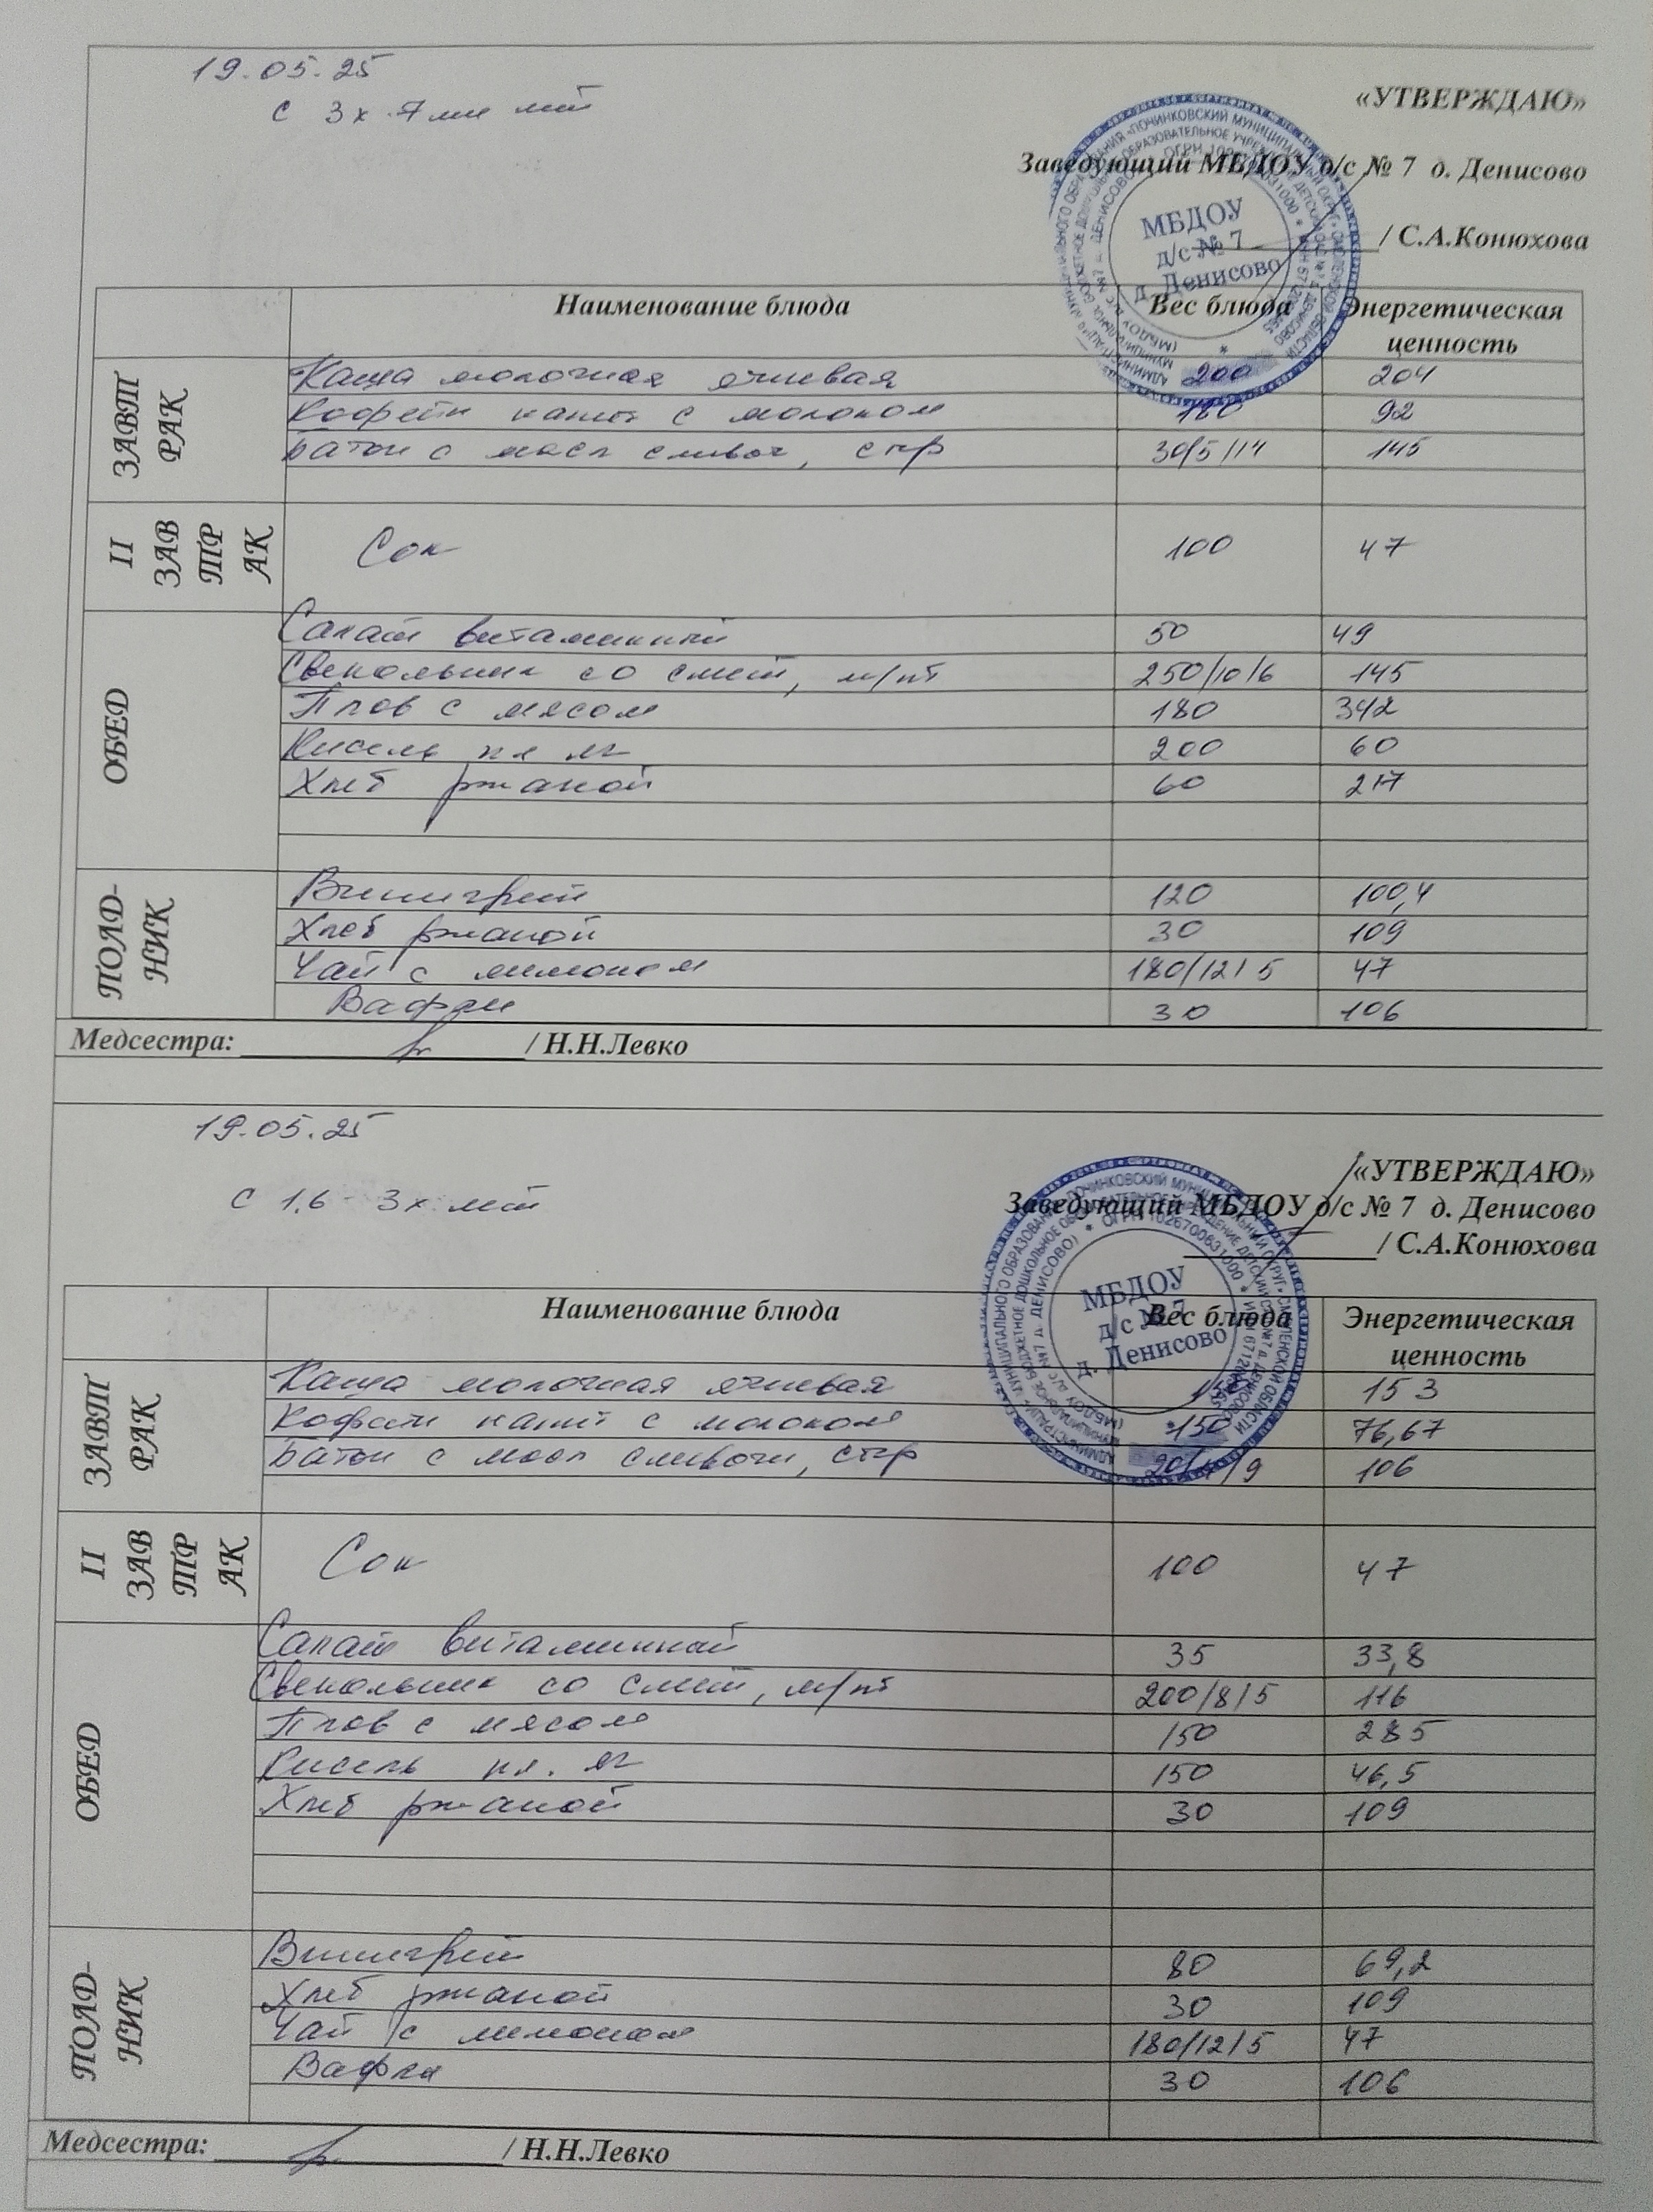 19.05.25
с 3х-7ми лет
«УТВЕРЖДАЮ»
Заведующий МБДОУ д/с № 7 д. Денисово
/ С.А.Конюхова
МБДОУ
д/с № 7
д. Денисово
Наименование блюда Вес блюда Энергетическая ценность
ЗАВТРАК
Каша молочная ячневая 200 204
Кофейн напит с молоком 180 92
Батон с масл сливоч, сыр 30/5/14 145
II ЗАВТРАК
Сок 100 47
ОБЕД
Салат витаминный 50 49
Свекольник со смет, м/пт 250/10/6 145
Плов с мясом 180 342
Кисель пл яг 200 60
Хлеб ржаной 60 217
ПОЛДНИК
Винигрет 120 100,4
Хлеб ржаной 30 109
Чай с лимоном 180/12/5 47
Вафли 30 106
Медсестра: / Н.Н.Левко
19.05.25
с 1,6-3х лет
«УТВЕРЖДАЮ»
Заведующий МБДОУ д/с № 7 д. Денисово
/ С.А.Конюхова
МБДОУ
д/с № 7
д. Денисово
Наименование блюда Вес блюда Энергетическая ценность
ЗАВТРАК
Каша молочная ячневая 153
Кофейн напит с молоком 150 76,67
Батон с масл сливочн, сыр 106
II ЗАВТРАК
Сок 100 47
ОБЕД
Салат витаминный 35 33,8
Свекольник со смет, м/пт 200/8/5 116
Плов с мясом 150 285
Кисель пл. яг 150 46,5
Хлеб ржаной 30 109
ПОЛДНИК
Винигрет 80 69,2
Хлеб ржаной 30 109
Чай с лимоном 180/12/5 47
Вафли 30 106
Медсестра: / Н.Н.Левко